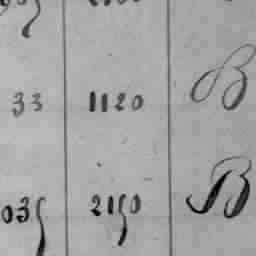 33 1120 B
035 2150 B